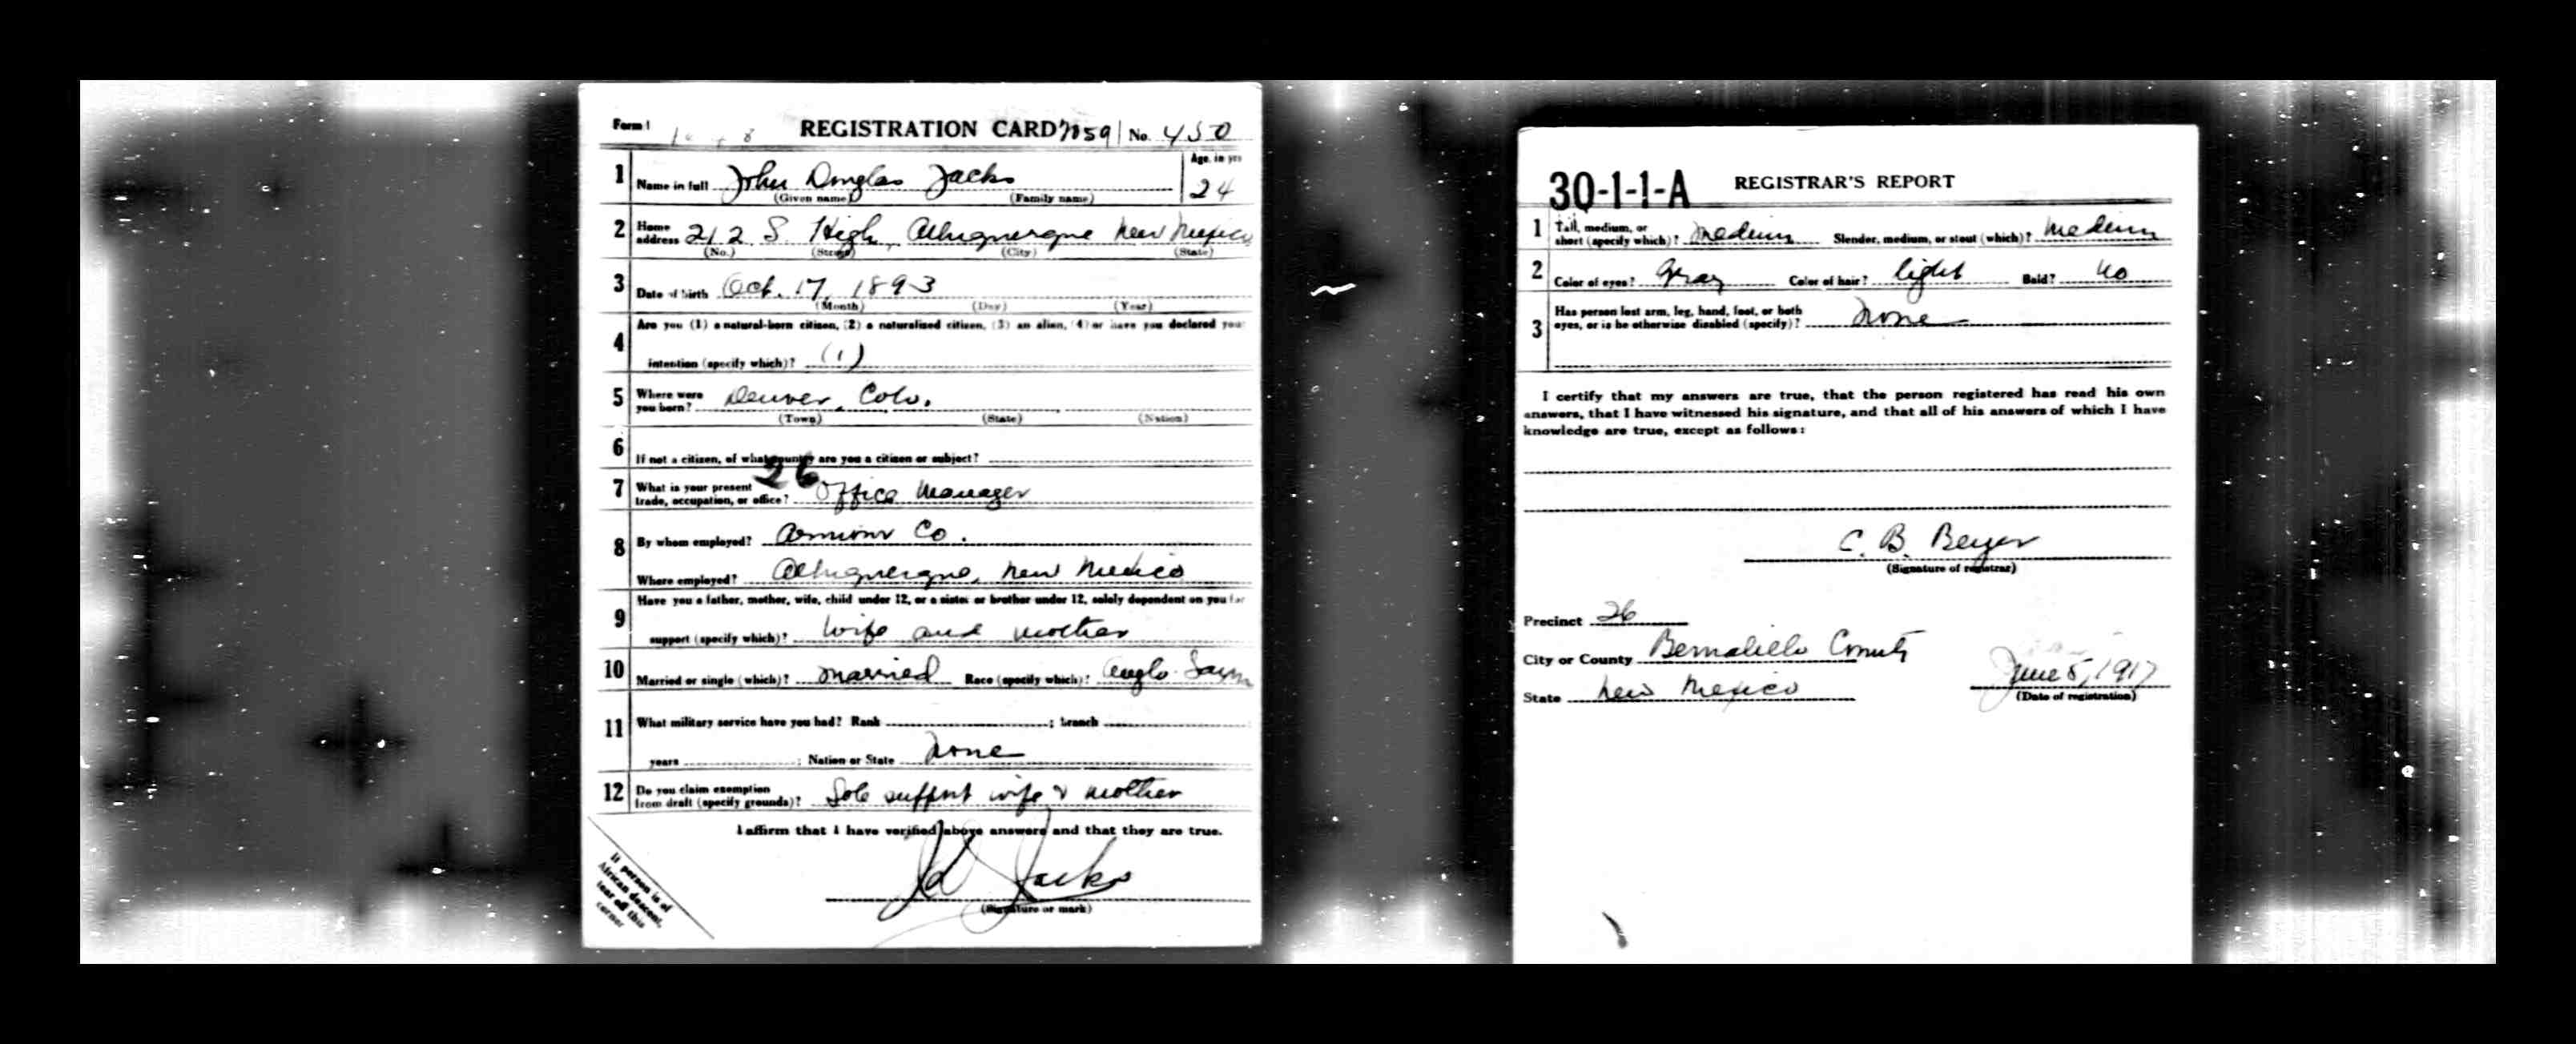 Form 1 REGISTRATION CARD 7859 No. 450
1 Name in full John Douglas Jacks Age, in yrs 24
(Given name) (Family name)
2 Home address 212 S High, Albuquerque New Mexico
(No.) (Street) (City) (State)
3 Date of birth Oct. 17, 1893
(Month) (Day) (Year)
4 Are you (1) a natural-born citizen, (2) a naturalized citizen, (3) an alien, (4) or have you declared your
intention (specify which)? (1)
5 Where were you born? Denver, Colo.
(Town) (State) (Nation)
6 If not a citizen, of what country are you a citizen or subject?
26
7 What is your present trade, occupation, or office? Office Manager
8 By whom employed? Armour Co.
Where employed? Albuquerque, New Mexico
9 Have you a father, mother, wife, child under 12, or a sister or brother under 12, solely dependent on you for
support (specify which)? Wife and mother
10 Married or single (which)? Married Race (specify which)? Anglo-Saxon
11 What military service have you had? Rank ; branch
years ; Nation or State None
12 Do you claim exemption from draft (specify grounds)? Sole support wife & mother
I affirm that I have verified above answers and that they are true.
J D Jacks
(Signature or mark)
If person is of
African descent,
tear off this
corner
30-1-1-A REGISTRAR'S REPORT
1 Tall, medium, or short (specify which)? Medium Slender, medium, or stout (which)? Medium
2 Color of eyes? Gray Color of hair? light Bald? No
3 Has person lost arm, leg, hand, foot, or both eyes, or is he otherwise disabled (specify)? None
I certify that my answers are true, that the person registered has read his own
answers, that I have witnessed his signature, and that all of his answers of which I have
knowledge are true, except as follows:
C. B. Beyer
(Signature of registrar)
Precinct 26
City or County Bernalillo County
State New Mexico June 5, 1917
(Date of registration)